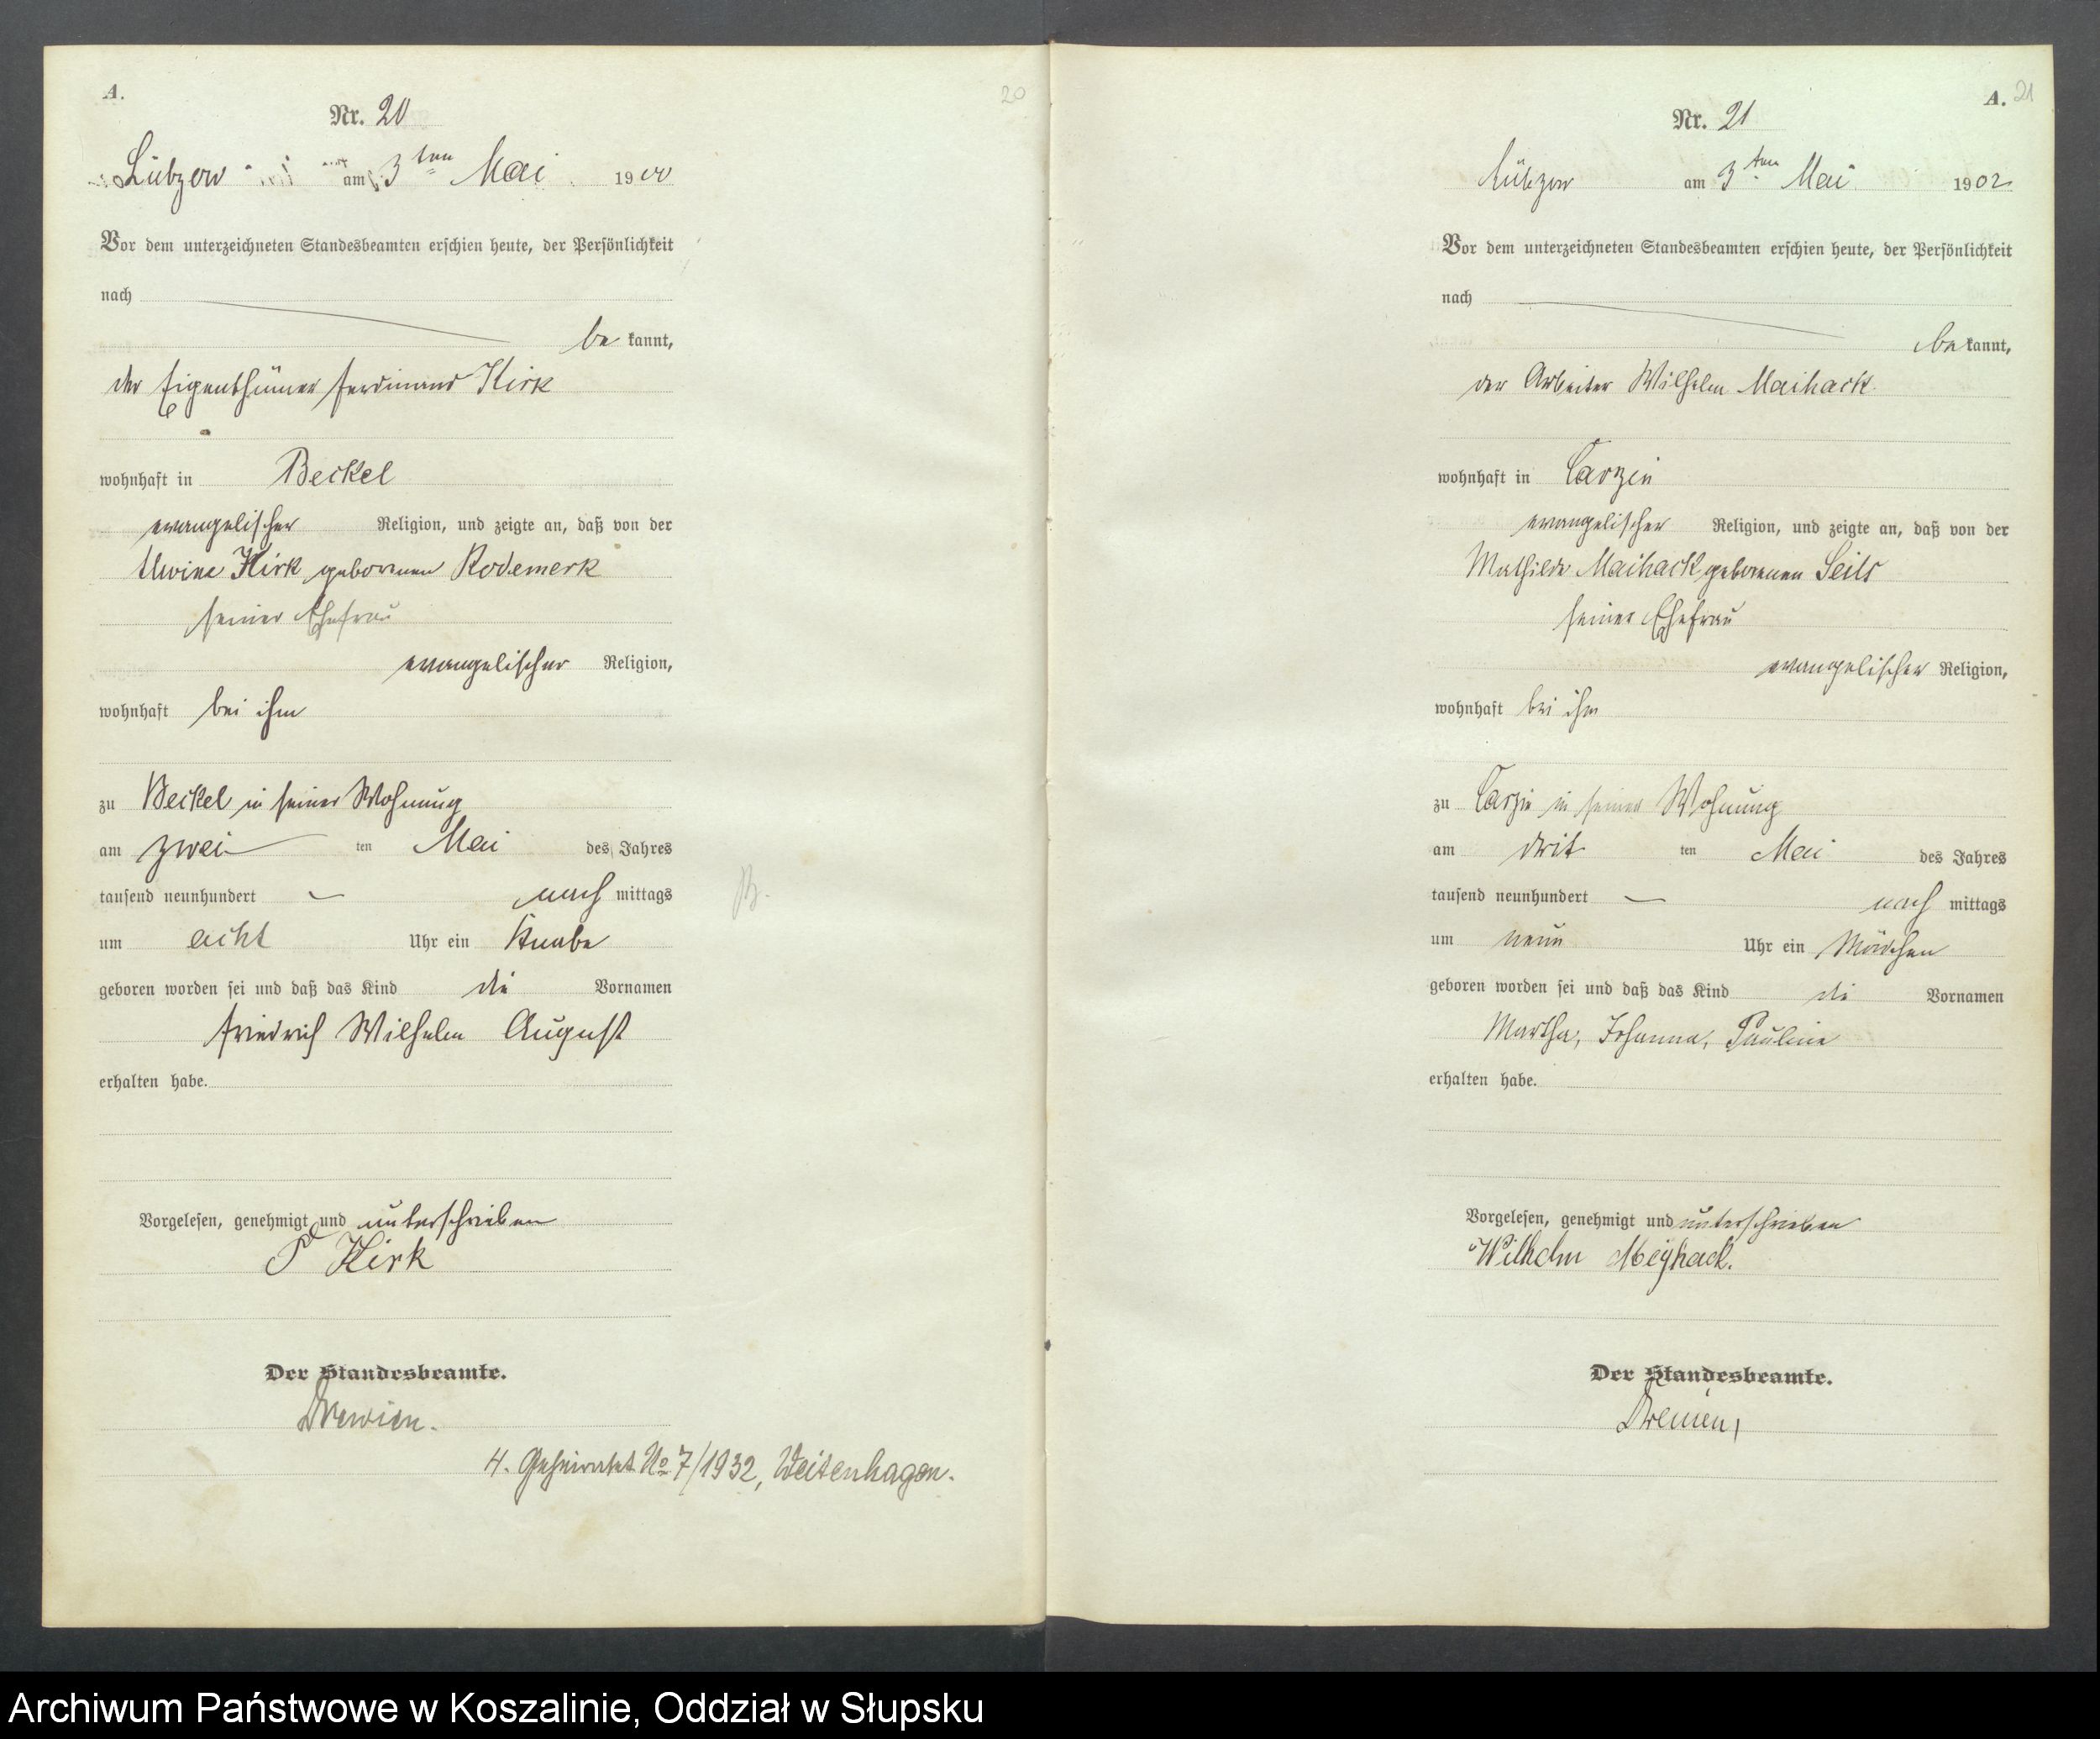 A.
20
Nr. 20
Lübzow am 3ten Mai 1900
Vor dem unterzeichneten Standesbeamten erschien heute, der Persönlichkeit
nach
be kannt,
der Eigenthümer Ferdinand Kirk
wohnhaft in Beckel
evangelischer Religion, und zeigte an, daß von der
Alwine Kirk geborenen Rodemerk
seiner Ehefrau
evangelischer Religion,
wohnhaft bei ihm
zu Beckel in seiner Wohnung
am zwei ten Mai des Jahres
tausend neunhundert — nach mittags
um acht Uhr ein Knabe
geboren worden sei und daß das Kind die Vornamen
Friedrich Wilhelm August
erhalten habe.
Vorgelesen, genehmigt und unterschrieben
F Kirk
Der Standesbeamte.
Drewien.
4. Geheiratet No 7/1932, Weitenhagen.
B.
A. 21
Nr. 21
Lübzow am 3ten Mai 1902
Vor dem unterzeichneten Standesbeamten erschien heute, der Persönlichkeit
nach
be kannt,
der Arbeiter Wilhelm Maihack
wohnhaft in Carzin
evangelischer Religion, und zeigte an, daß von der
Mathilde Maihack geborenen Seils
seiner Ehefrau
evangelischer Religion,
wohnhaft bei ihm
zu Carzin in seiner Wohnung
am drit ten Mai des Jahres
tausend neunhundert — nach mittags
um neun Uhr ein Mädchen
geboren worden sei und daß das Kind die Vornamen
Martha, Johanna, Pauline
erhalten habe.
Vorgelesen, genehmigt und unterschrieben
Wilhelm Meyhack.
Der Standesbeamte.
Drewien,
Archiwum Państwowe w Koszalinie, Oddział w Słupsku